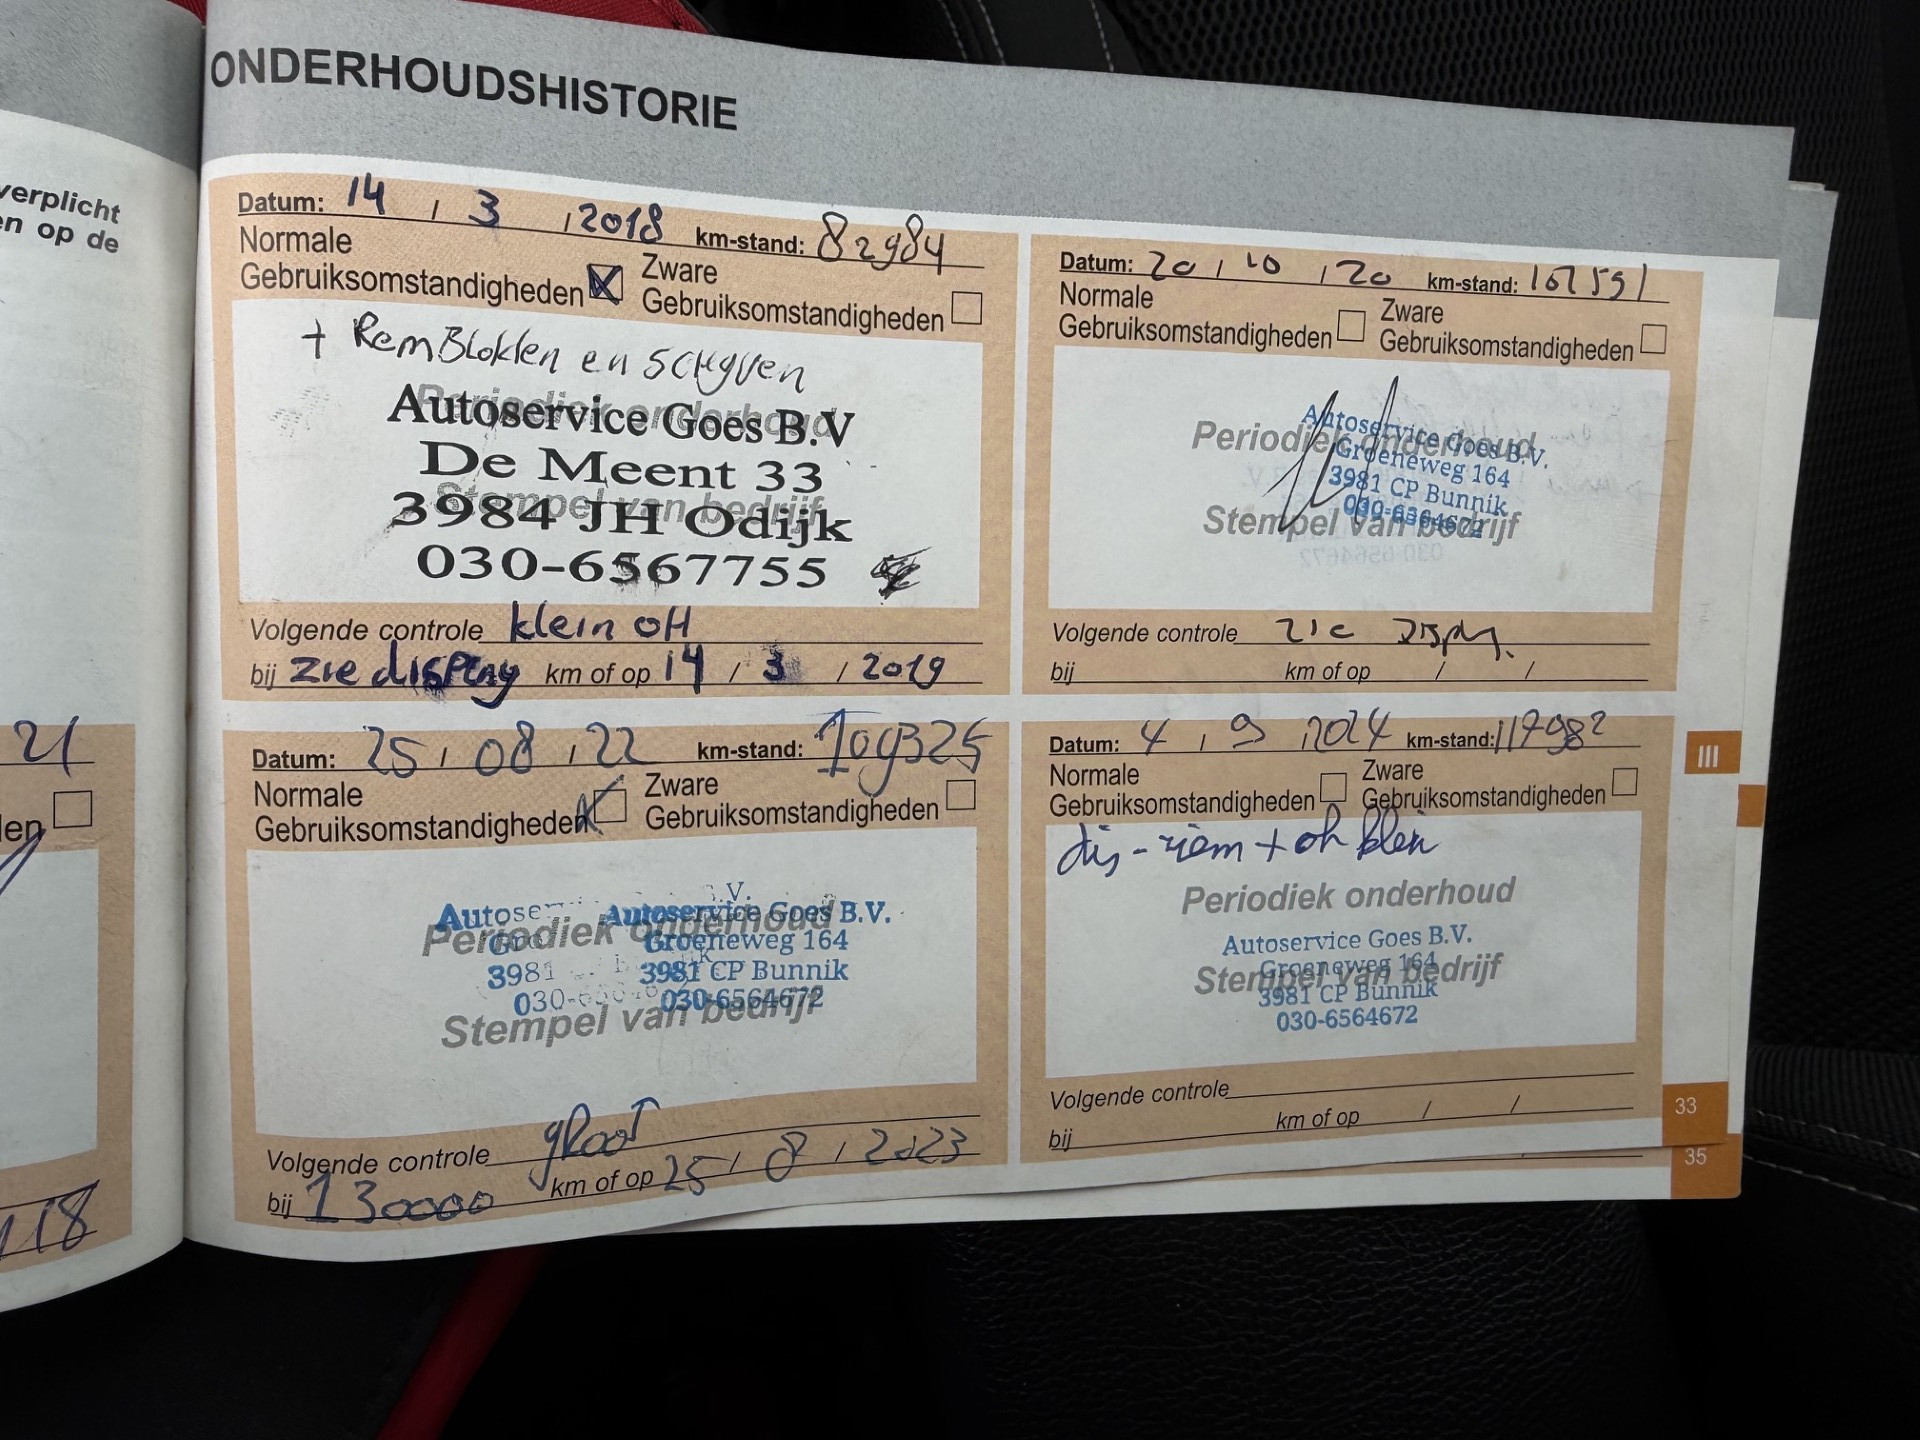 ONDERHOUDSHISTORIE
verplicht
en op de
21
len
118
Datum: 14 / 3 / 2018 km-stand: 82984
Normale Gebruiksomstandigheden
Zware Gebruiksomstandigheden
+ RemBlokken en schyven
Periodiek onderhoud
Autoservice Goes B.V
De Meent 33
Stempel van bedrijf
3984 JH Odijk
030-6567755
Volgende controle klein OH
bij zie display km of op 14 / 3 / 2019
Datum: 20 / 10 / 20 km-stand:
Normale Gebruiksomstandigheden
Zware Gebruiksomstandigheden
Periodiek onderhoud
Autoservice Goes B.V.
Groeneweg 164
3981 CP Bunnik
030-6564672
Stempel van bedrijf
Volgende controle zie Display
bij km of op / /
Datum: 25 / 08 / 22 km-stand: 109325
Normale Gebruiksomstandigheden
Zware Gebruiksomstandigheden
Periodiek onderhoud
Autoservice Goes B.V.
Groeneweg 164
3981 CP Bunnik
030-6564672
Stempel van bedrijf
Volgende controle groot
bij 130000 km of op 25 / 8 / 2023
Datum: 4 / 9 / 2024 km-stand: 117982
Normale Gebruiksomstandigheden
Zware Gebruiksomstandigheden
dis-riem + oh klein
Periodiek onderhoud
Autoservice Goes B.V.
Groeneweg 164
Stempel van bedrijf
3981 CP Bunnik
030-6564672
Volgende controle
bij km of op / /
III
33
35